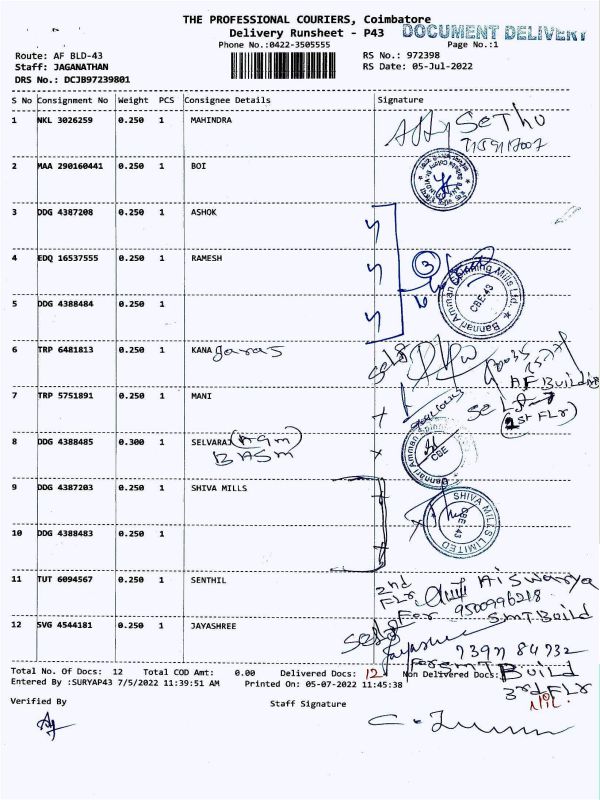 THE PROFESSIONAL COURIERS, Coimbatore
Delivery Runsheet - P43
DOCUMENT DELIVERY
Phone No.:0422-3505555
Page No.:1
Route: AF BLD-43
RS No.: 972398
Staff: JAGANATHAN
RS Date: 05-Jul-2022
DRS No.: DCJB97239801
S No Consignment No Weight PCS Consignee Details Signature
1 NKL 3026259 0.250 1 MAHINDRA
Sethu
2 MAA 290160441 0.250 1 BOI
3 DDG 4387208 0.250 1 ASHOK
4 EDQ 16537555 0.250 1 RAMESH
3
Bannari Amman Spinning Mills Ltd.
CBE-43
5 DDG 4388484 0.250 1
6 TRP 6481813 0.250 1 KANA
self
AF Building
7 TRP 5751891 0.250 1 MANI
Self
(1st FLr)
8 DDG 4388485 0.300 1 SELVARAJ (AGM)
BASM
CBE
9 DDG 4387203 0.250 1 SHIVA MILLS
SHIVA MILLS LIMITED
CBE-43
10 DDG 4388483 0.250 1
11 TUT 6094567 0.250 1 SENTHIL
2nd FLr
Aiswarya
9500996218
For SMT Build
12 SVG 4544181 0.250 1 JAYASHREE
Self
Jayashree
7397 84732
For SMT Build
3rd FLr
Total No. Of Docs: 12 Total COD Amt: 0.00 Delivered Docs: 12 Non Delivered Docs: NIL
Entered By :SURYAP43 7/5/2022 11:39:51 AM Printed On: 05-07-2022 11:45:38
Verified By
Staff Signature